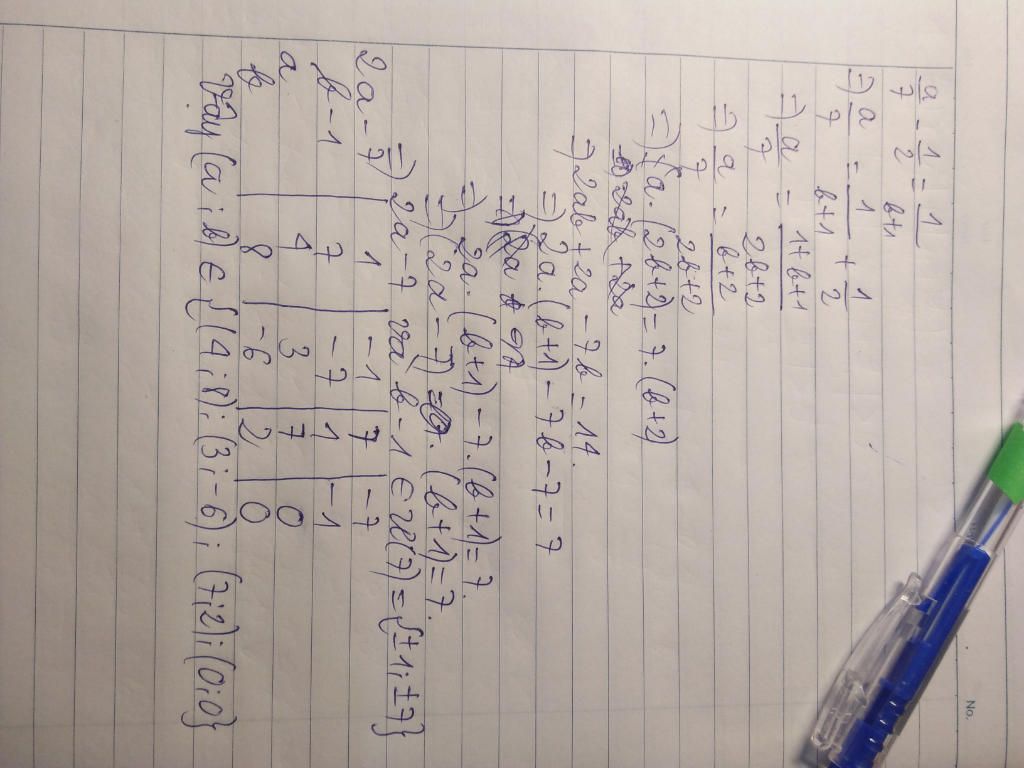 a/7 - 1/2 = 1/b+1
=) a/7 = 1/b+1 + 1/2
=) a/7 = 1+b+1/2b+2
=) a/7 = b+2/2b+2
=) a.(2b+2) = 7.(b+2)
=) 2ab + 2a - 7b = 14.
=) 2a.(b+1) - 7b - 7 = 7
=) 2a.(b+1) - 7.(b+1) = 7.
=) (2a - 7). (b+1) = 7.
=) 2a - 7 và b - 1 ∈ Ư(7) = {±1; ±7}
2a - 7 | 1 | -1 | 7 | -7
b - 1 | 7 | -7 | 1 | -1
a | 4 | 3 | 7 | 0
b | 8 | -6 | 2 | 0
Vậy (a; b) ∈ {(4; 8); (3; -6); (7; 2); (0; 0)}
No.